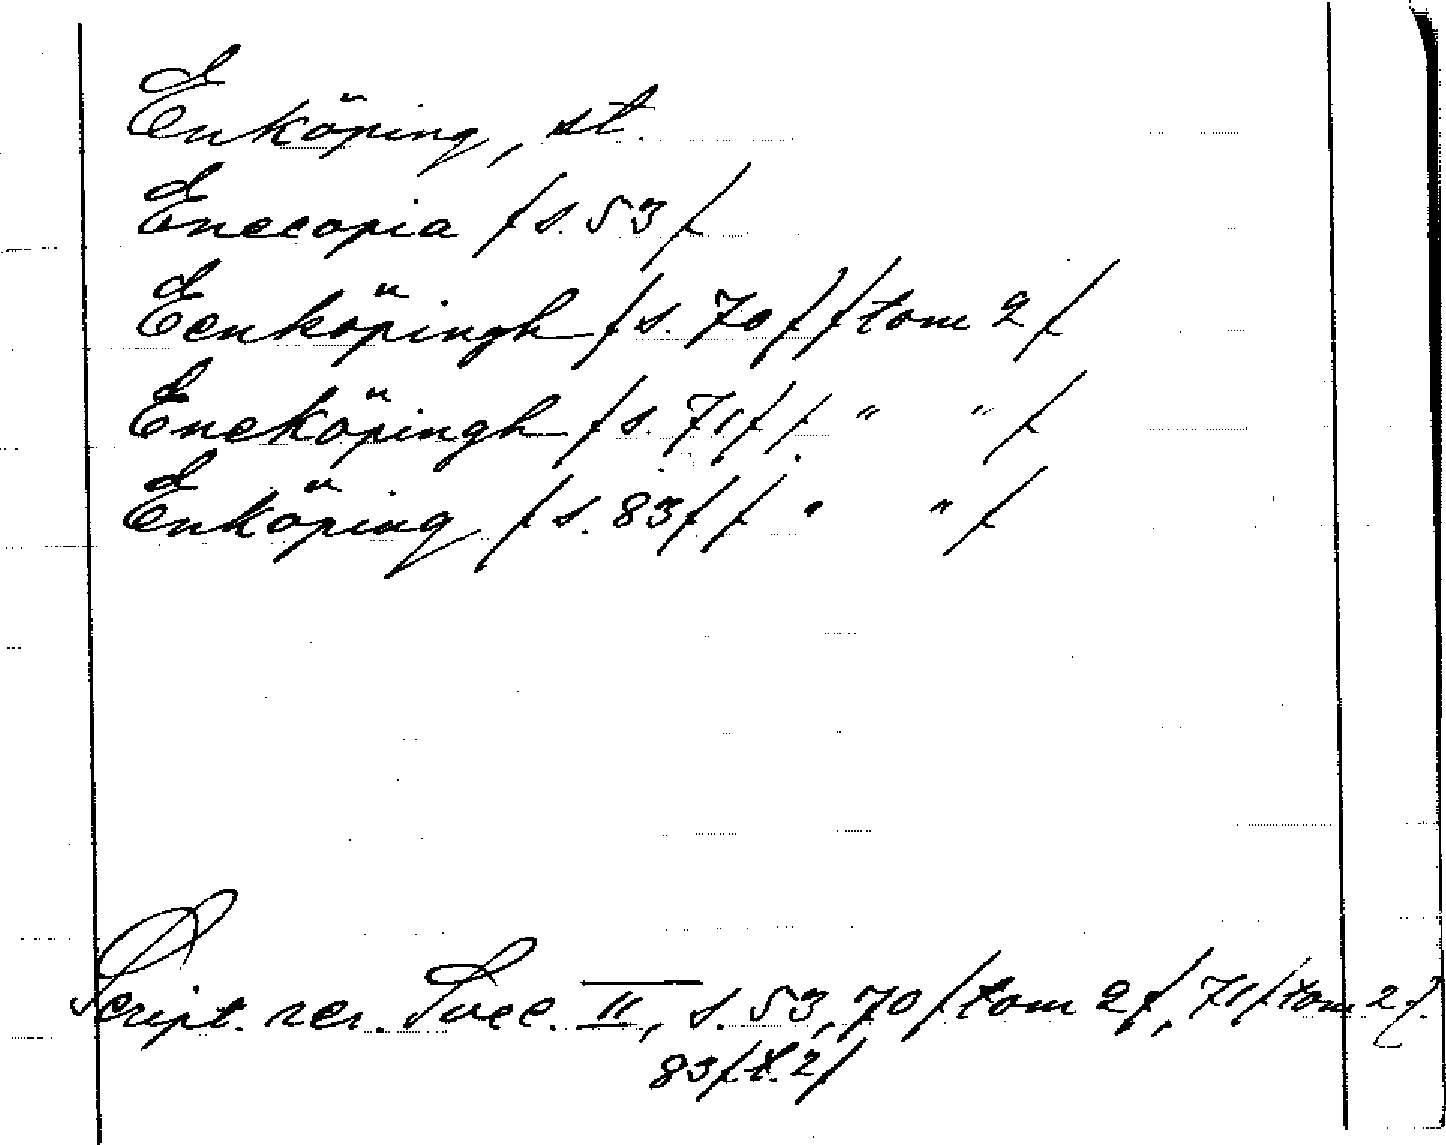 Enköping, st.
Enecopia /s. 53/
Eenköpingh /s. 70/ /tom 2/
Eneköpingh /s. 71/ / " " /
Enköping /s. 83/ / " " /
Script. rer. Svec. II, s. 53, 70 /tom 2/, 71 /tom 2/.
83 /t. 2/